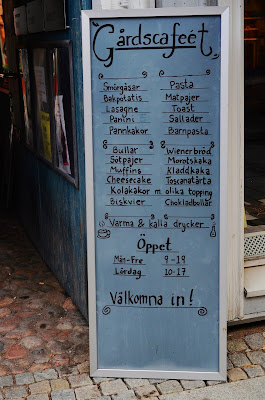 Gårdscafeét
Smörgåsar Pasta
Bakpotatis Matpajer
Lasagne Toast
Panini Sallader
Pannkakor Barnpasta
Bullar Wienerbröd
Sötpajer Morotskaka
Muffins Kladdkaka
Cheesecake Toscanatårta
Kolakakor m. olika topping
Biskvier Chokladbullar
Varma & kalla drycker
Öppet
Mån-Fre 9-19
Lördag 10-17
Välkomna in!